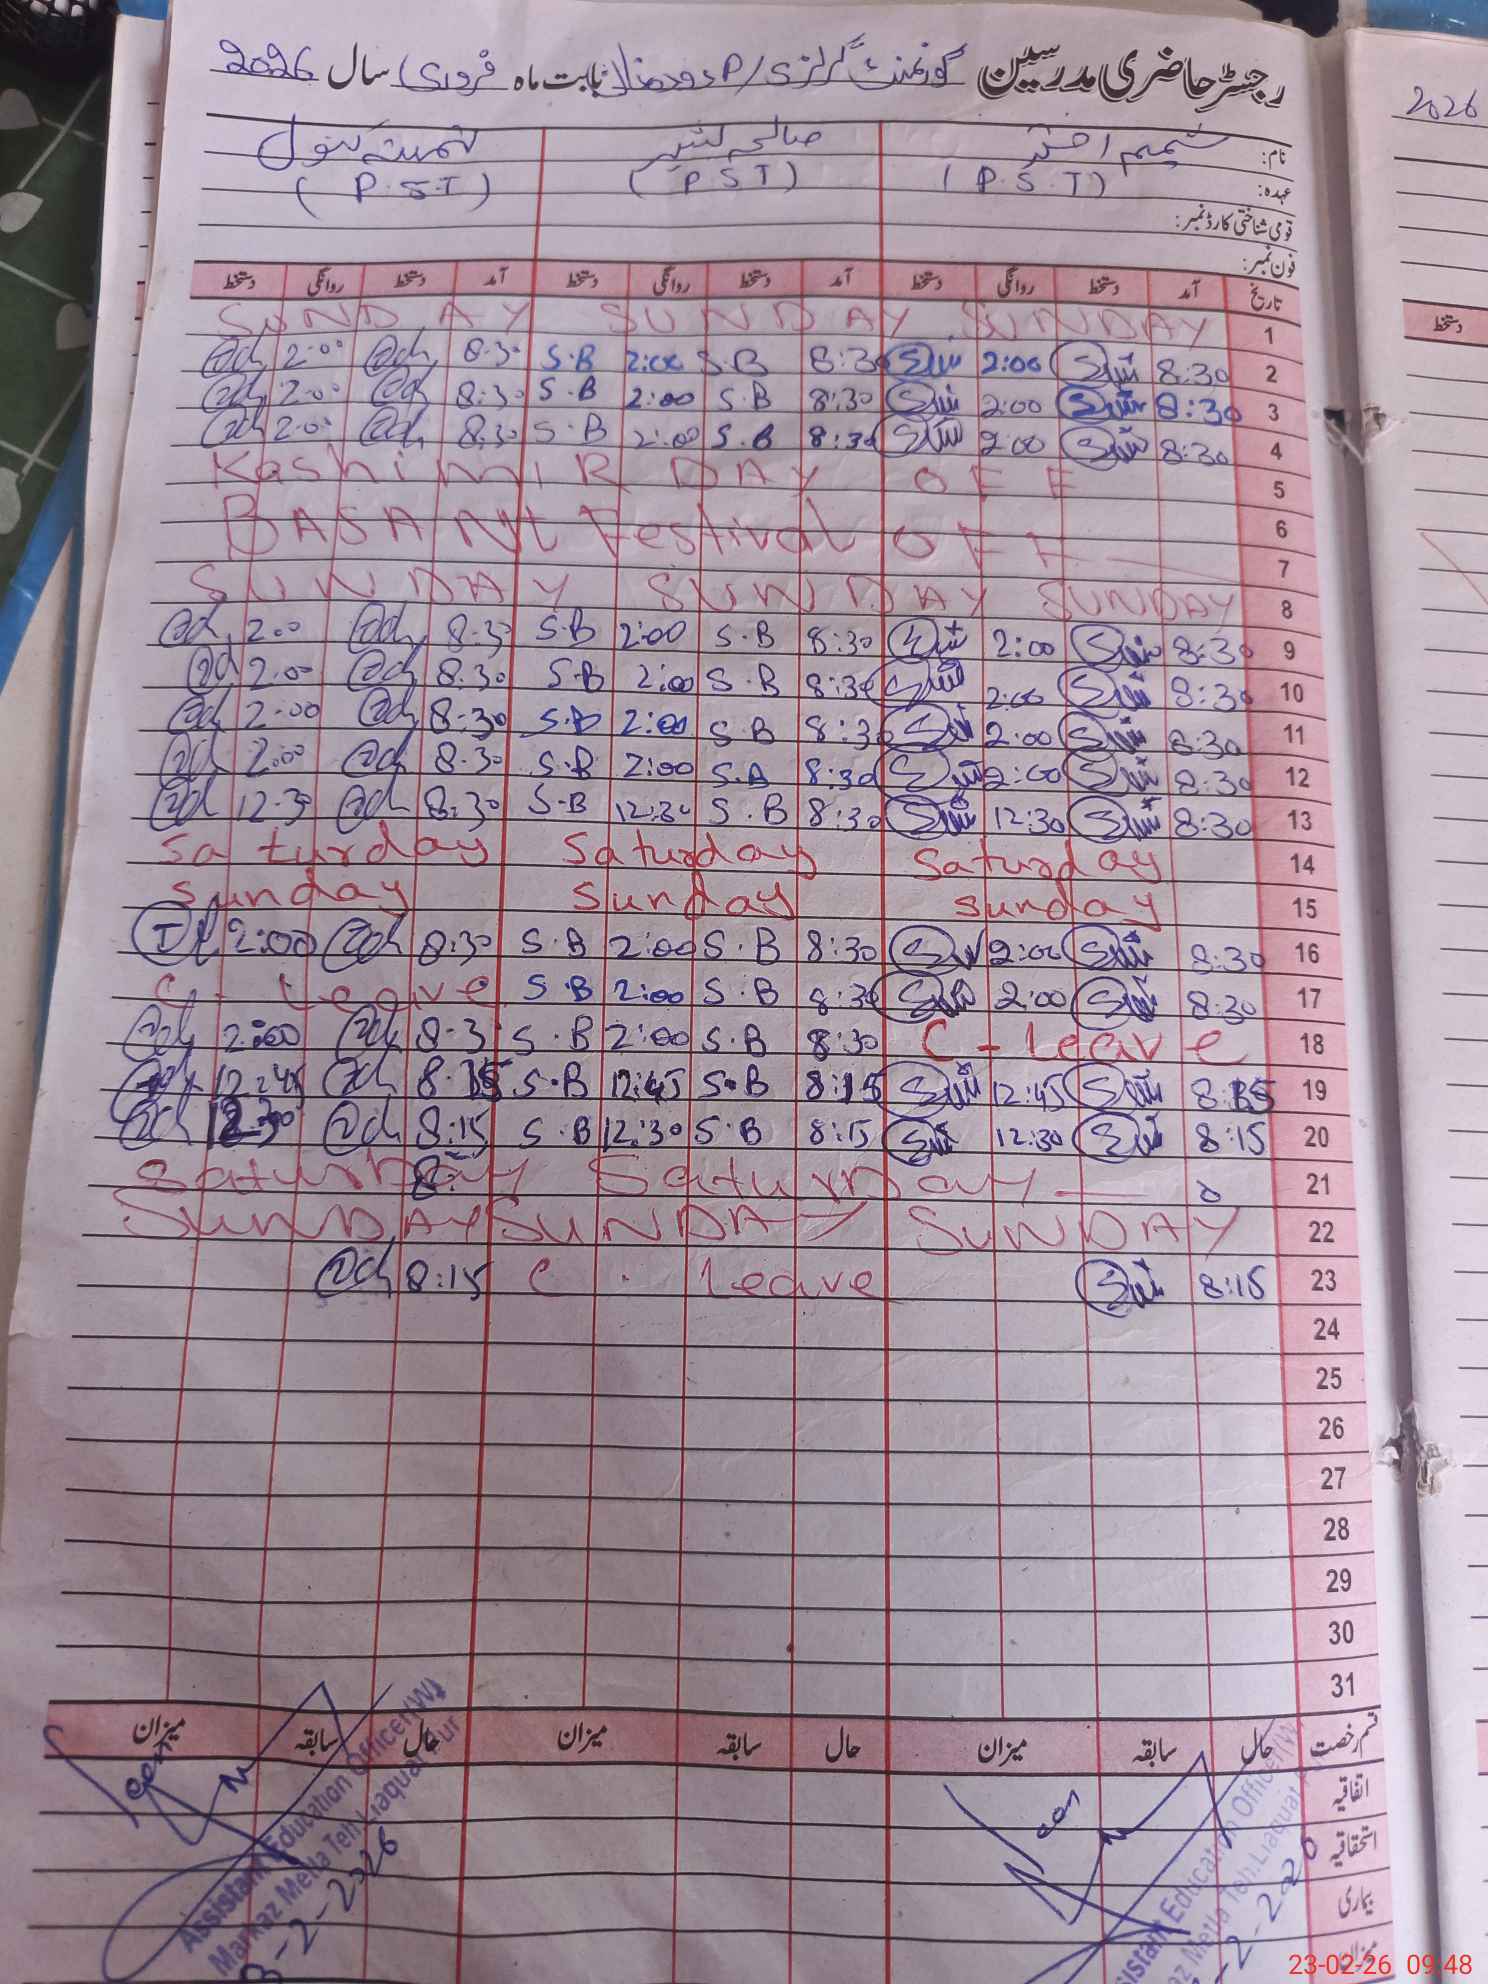 رجسٹر حاضری مدرسین گورنمنٹ گرلز بابت ماہ فروری سال 2026
نام: شمیم اختر صالحہ ثمینہ کنول
عہدہ: (P.S.T) (PST) (P.S.T)
قومی شناختی کارڈ نمبر:
فون نمبر:
تاریخ آمد دستخط روانگی دستخط آمد دستخط روانگی دستخط آمد دستخط روانگی دستخط
SUNDAY SUNDAY SUNDAY 1
2:00 8:30 S.B 2:00 S.B 8:30 2:00 8:30 2
2:00 8:30 S.B 2:00 S.B 8:30 2:00 8:30 3
2:00 8:30 S.B 2:00 S.B 8:30 2:00 8:30 4
KashimIR DAY OFF 5
BASANt Festival OFF 6
7
SUNDAY SUNDAY SUNDAY 8
2:00 8:30 S.B 2:00 S.B 8:30 2:00 8:30 9
2:00 8:30 S.B 2:00 S.B 8:30 2:00 8:30 10
2:00 8:30 S.B 2:00 S.B 8:30 2:00 8:30 11
2:00 8:30 S.B 2:00 S.B 8:30 2:00 8:30 12
12:30 8:30 S.B 12:30 S.B 8:30 12:30 8:30 13
Saturday Saturday Saturday 14
Sunday Sunday Sunday 15
2:00 8:30 S.B 2:00 S.B 8:30 2:00 8:30 16
C - Leave S.B 2:00 S.B 8:30 2:00 8:30 17
2:00 8:3 S.B 2:00 S.B 8:30 C - Leave 18
12:45 8:15 S.B 12:45 S.B 8:15 12:45 8:15 19
12:30 8:15 S.B 12:30 S.B 8:15 12:30 8:15 20
SaturDay SaturDay 21
SUNDAY SUNDAY SUNDAY 22
8:15 C . Leave 8:15 23
24
25
26
27
28
29
30
31
قسم رخصت حال سابقہ میزان حال سابقہ میزان حال سابقہ میزان
اتفاقیہ
استحقاقیہ
بیماری
میزان
Assistant Education Officer(W)
Markaz Metla Teh. Liaquat Pur
-2-2026
Assistant Education Officer(W)
Metla Teh. Liaquat
2-2026
2026
دستخط
23-02-26 09:48